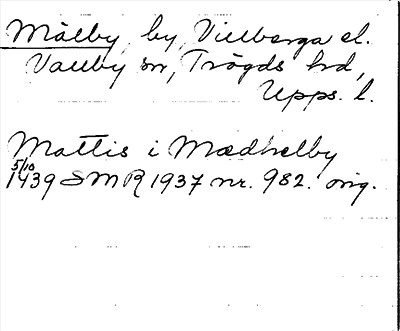 Målby, by, Villberga el.
Vallby sn, Trögds hd,
Upps. l.
Mattis i Mædhelby
5/10
1439 SMR 1937 nr. 982. orig.